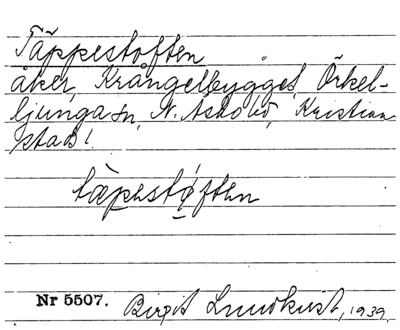 Täppestoften
åker, Krångelbygget, Örkel-
ljunga sn, N. Åsbo hd, Kristian
stads l
tæpestǿften
Nr 5507. Birgit Lundkvist, 1939.